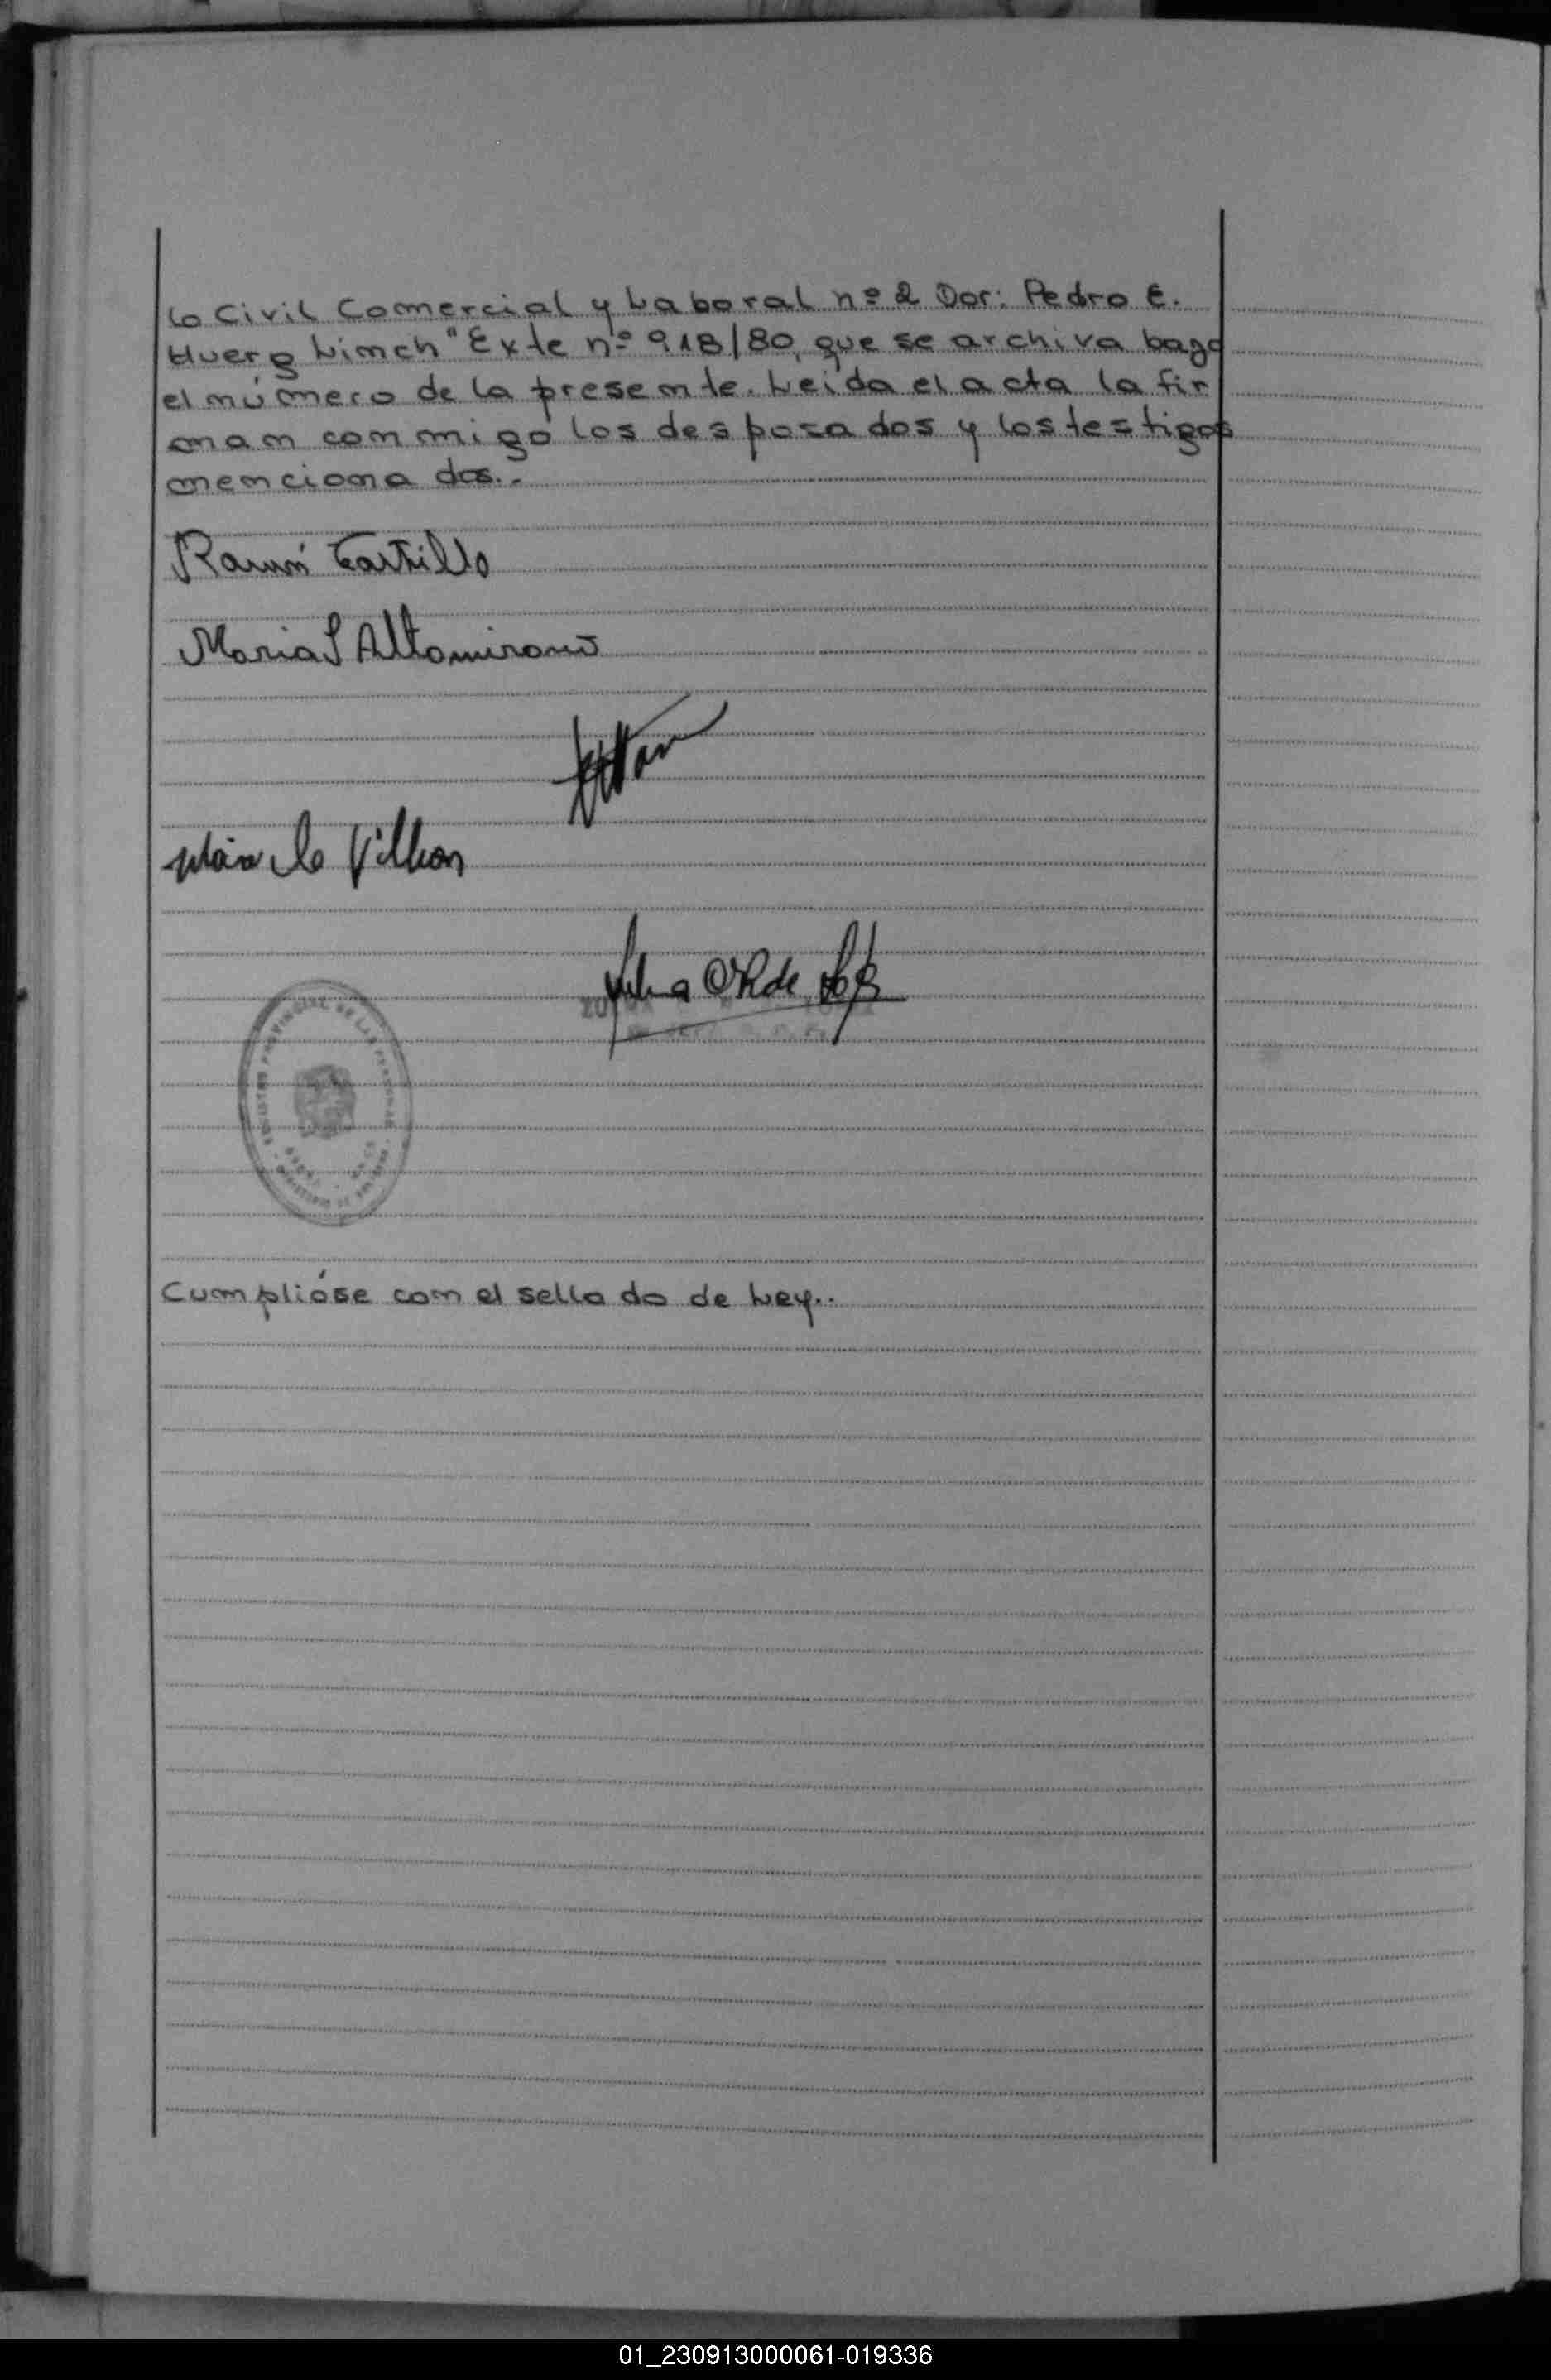 lo Civil Comercial y Laboral nº 2 Dor: Pedro E.
Huerg Linch" Exte nº 918/80, que se archiva bago
el número de la presente. Leida el acta la fir
man conmigo los desposados y los testigos
mencionados..
Ramón Castillo
Maria S Altamirano
Villion
Cumplióse con el sellado de Ley..
01_230913000061-019336